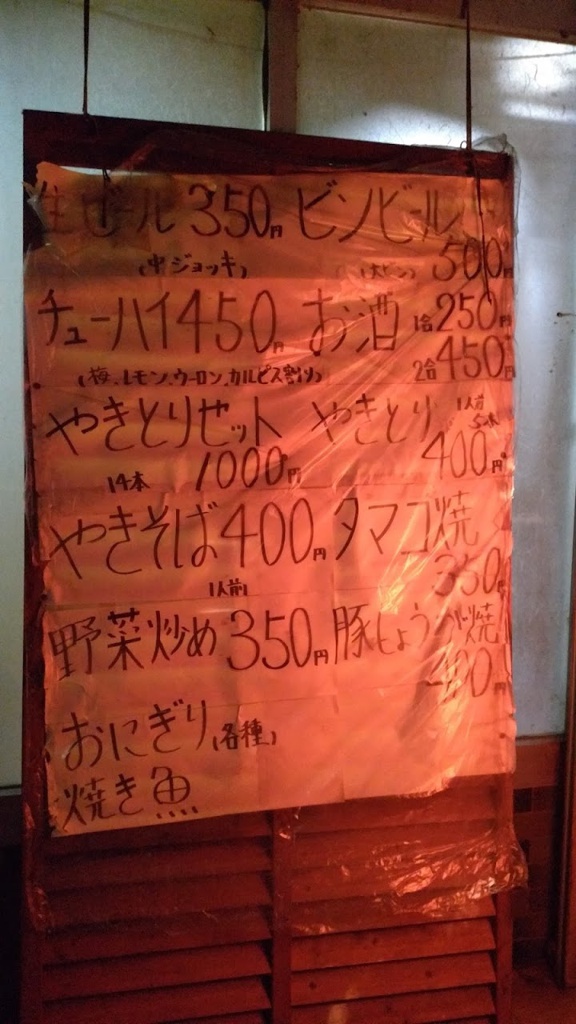 生ビール 350円 ビンビール
(中ジョッキ) (大ビン) 500円
チューハイ 450円 お酒 1合 250円
(梅、レモン、ウーロン、カルピス割り) 2合 450円
やきとりセット やきとり 1人前 5本
14本 1000円 400円
やきそば 400円 タマゴ焼
1人前 350円
野菜炒め 350円 豚しょうが焼
400円
おにぎり(各種)
焼き魚